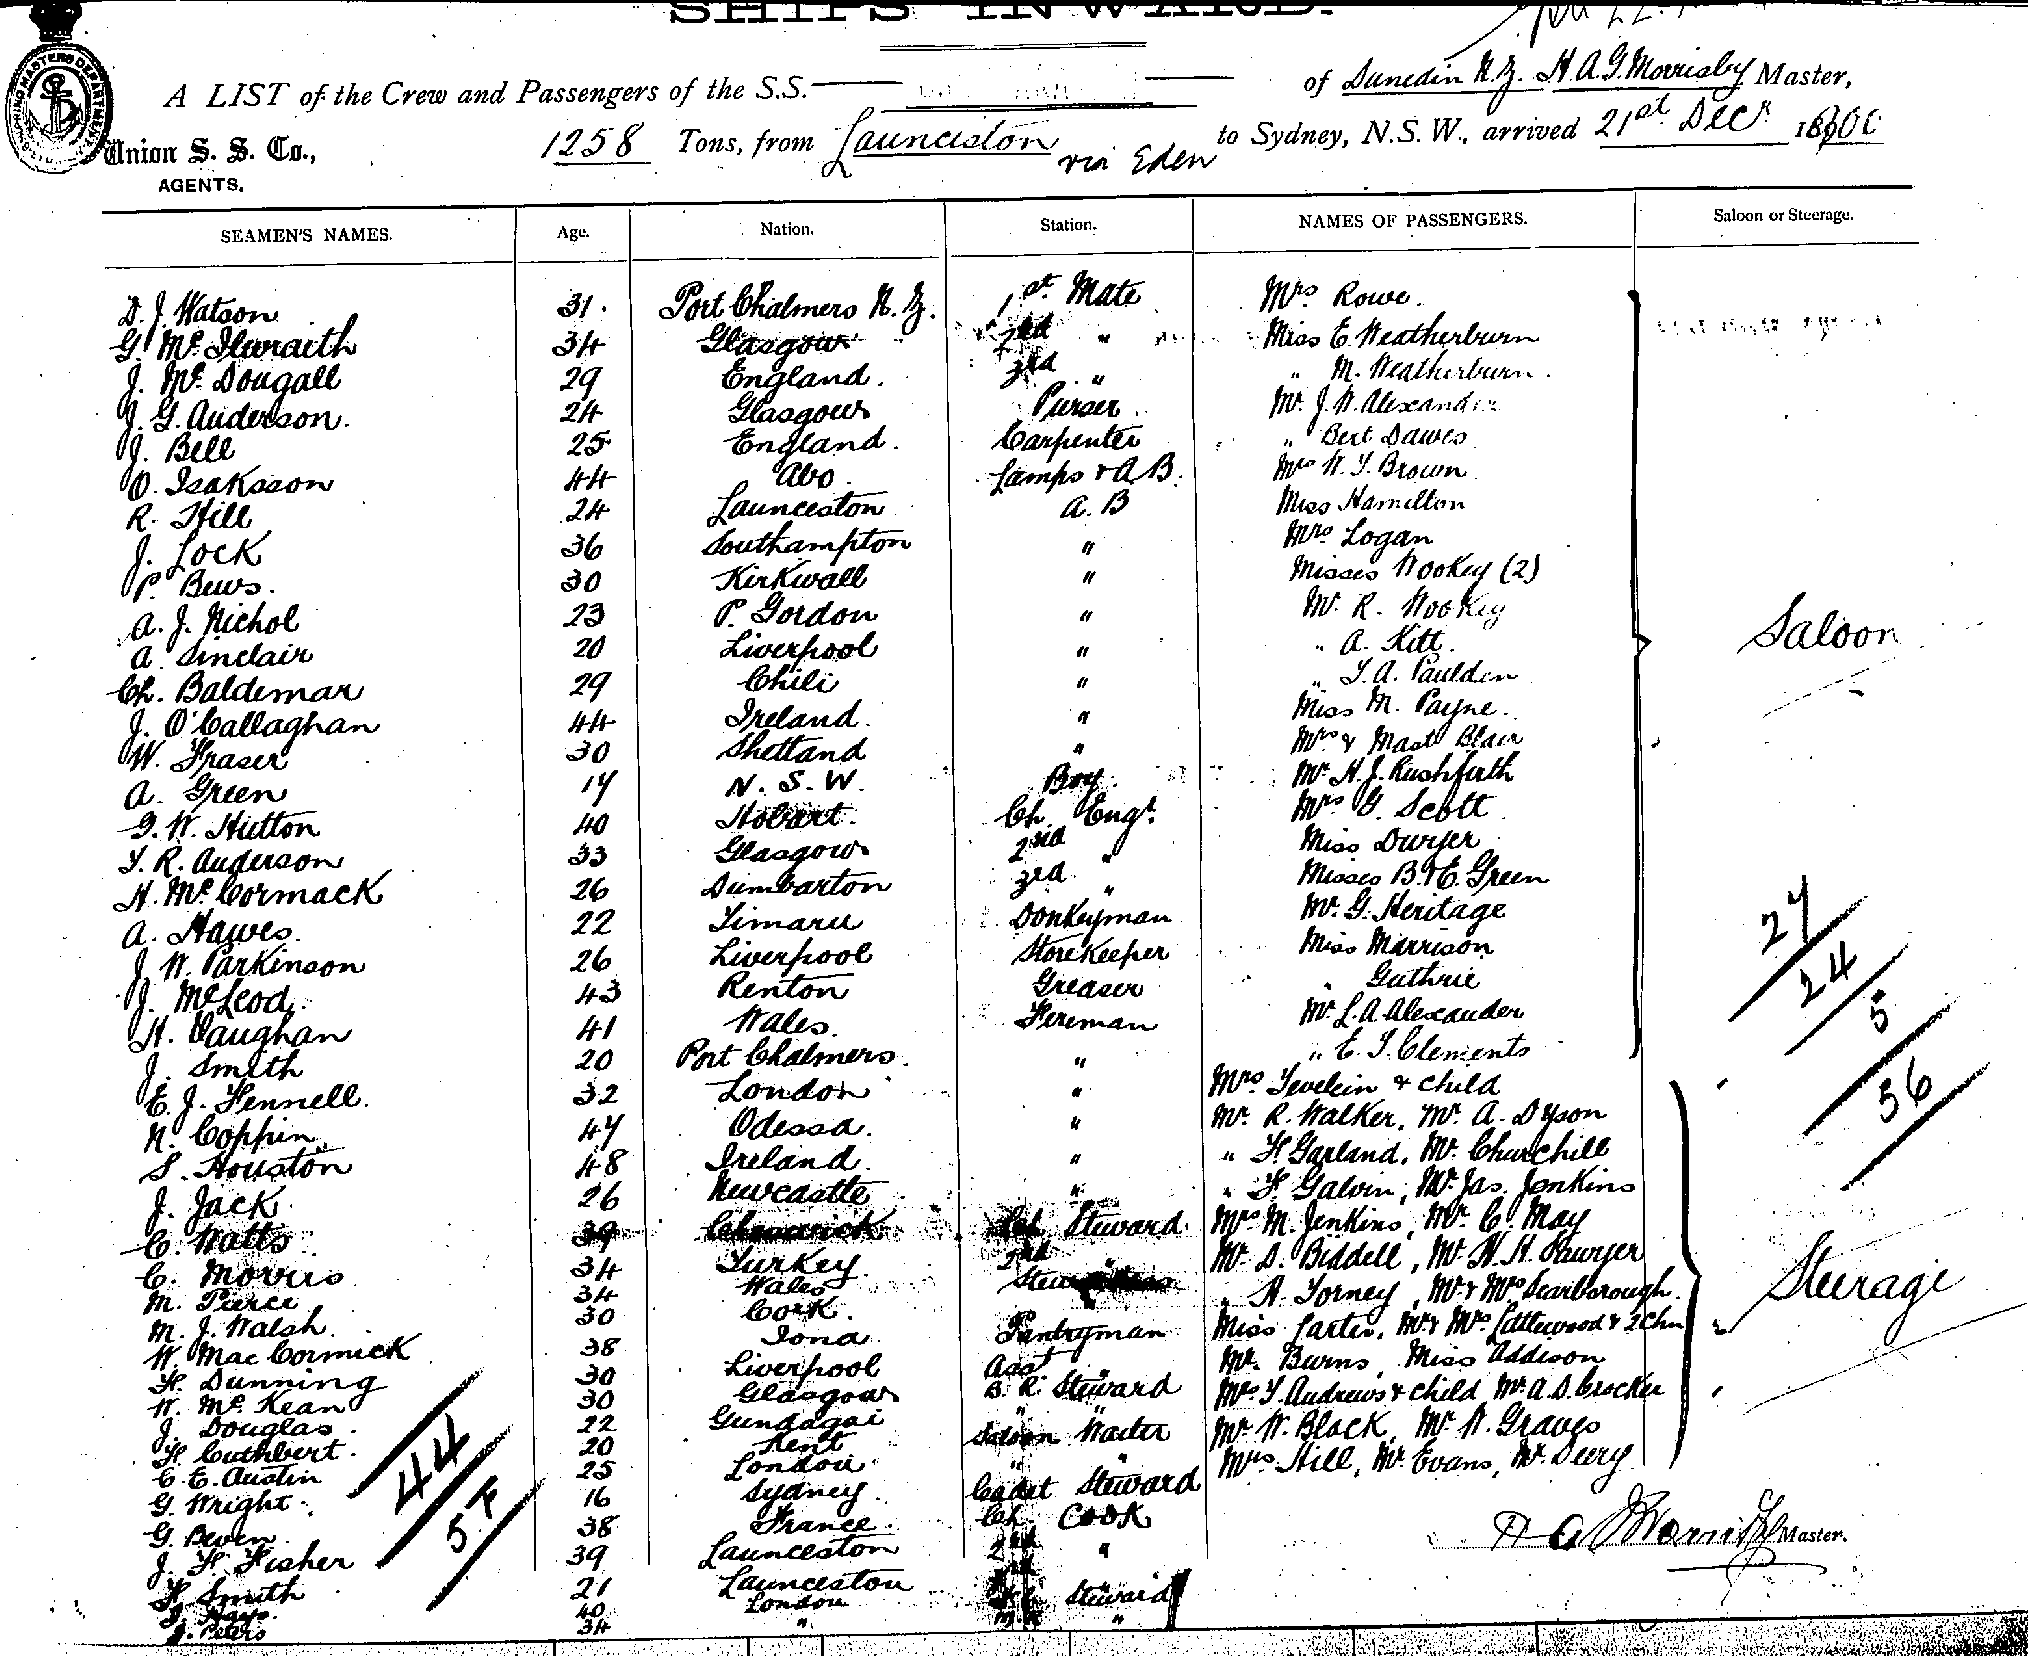 SHIPS INWARD.
SHIPPING MASTERS DEPARTMENT
A LIST of the Crew and Passengers of the S.S. of Dunedin N.Z. H.A.G. Morrisby Master,
Union S. S. Co., AGENTS.
1258 Tons, from Launceston via Eden to Sydney, N.S.W., arrived 21st Decr 1900
SEAMEN'S NAMES. Age. Nation. Station. NAMES OF PASSENGERS. Saloon or Steerage.
D. J. Watson 31. Port Chalmers N.Z. 1st Mate Mrs Rowe.
G. Mc Ilwraith 34 Glasgow 2nd " Miss E Weatherburn
J. Mc Dougall 29 England. 3rd " " M. Weatherburn.
J. G. Anderson. 24 Glasgow Purser Mr. J. W. Alexander
J. Bell 25 England. Carpenter " Bert Dawes
O. Isaksson 44 Abo Lamps & A B. Mrs W. T. Brown
R. Hill 24 Launceston A. B Miss Hamilton
J. Lock 36 Southampton " Mrs Logan
P. Bews. 30 Kirkwall " Misses Wookey (2)
A. J. Nichol 23 P. Gordon " Mr. R. Wookey Saloon
A. Sinclair 20 Liverpool " " A. Kitt.
Ch. Baldemar 29 Chili " " T. A. Paulden
J. O'Callaghan 44 Ireland. " Miss M. Payne.
W. Fraser 30 Shetland " Mrs & Mast Blair
A. Green 17 N. S. W. Boy Mr. H. J. Rushforth
G. W. Hutton 40 Hobart. Ch. Engr. Mrs G. Scott
T. R. Anderson 33 Glasgow 2nd " Miss Dwyer
H. Mc Cormack 26 Dumbarton 3rd " Misses B. & E. Green
A. Hawes. 22 Timaru Donkeyman Mr. G. Heritage 27
J. W. Parkinson 26 Liverpool Storekeeper Miss Marrison 24
J. McLeod. 43 Renton Greaser " Guthrie 5
H. Vaughan 41 Wales. Fireman Mr. L. A Alexander
J. Smith 20 Port Chalmers. " " E. J. Clements
E. J. Fennell. 32 London " Mrs & child 56
N. Coppin 47 Odessa. " Mr. R. Walker, Mr. A. Dyson
S. Houston 48 Ireland " " F. Garland, Mr. Churchill
J. Jack 26 Newcastle " " F. Galvin, Mr. Jas. Jenkins
C. Watts 39 Ch. Steward Mrs M. Jenkins, Mr. C. May
C. Morris 34 Turkey. 2nd " Mr. D. Biddell, Mr. H. H. Sawyer
M. Pierce 34 Wales " A. Torney, Mr & Mrs Scarborough. Steerage
M. J. Walsh. 30 Cork. Miss Carter, Mr & Mrs Littlewood & 2 Chn
W. Mac Cormick 38 Iona Pantryman Mr. Burns, Miss Addison
H. Dunning 30 Liverpool Asst " Mrs T. Andrews & child Mr. A. D. Crocker
W. Mc Kean 30 Glasgow B. R. Steward Mr. W. Black, Mr. W. Graves
J. Douglas. 22 Gundagai " " Mrs Hill, Mr. Evans, Mr. Deery
H. Cuthbert. 20 Kent Saloon Waiter
C. E. Austin 25 London " "
G. Wright. 16 Sydney Cadet Steward
G. Beven 38 France. Ch. Cook
J. F. Fisher 39 Launceston 2nd "
F. Smith 21 Launceston
J. Hays. 40 London Steward
J. Peters 34 " "
44
5. F
H A G Morrisby Master.